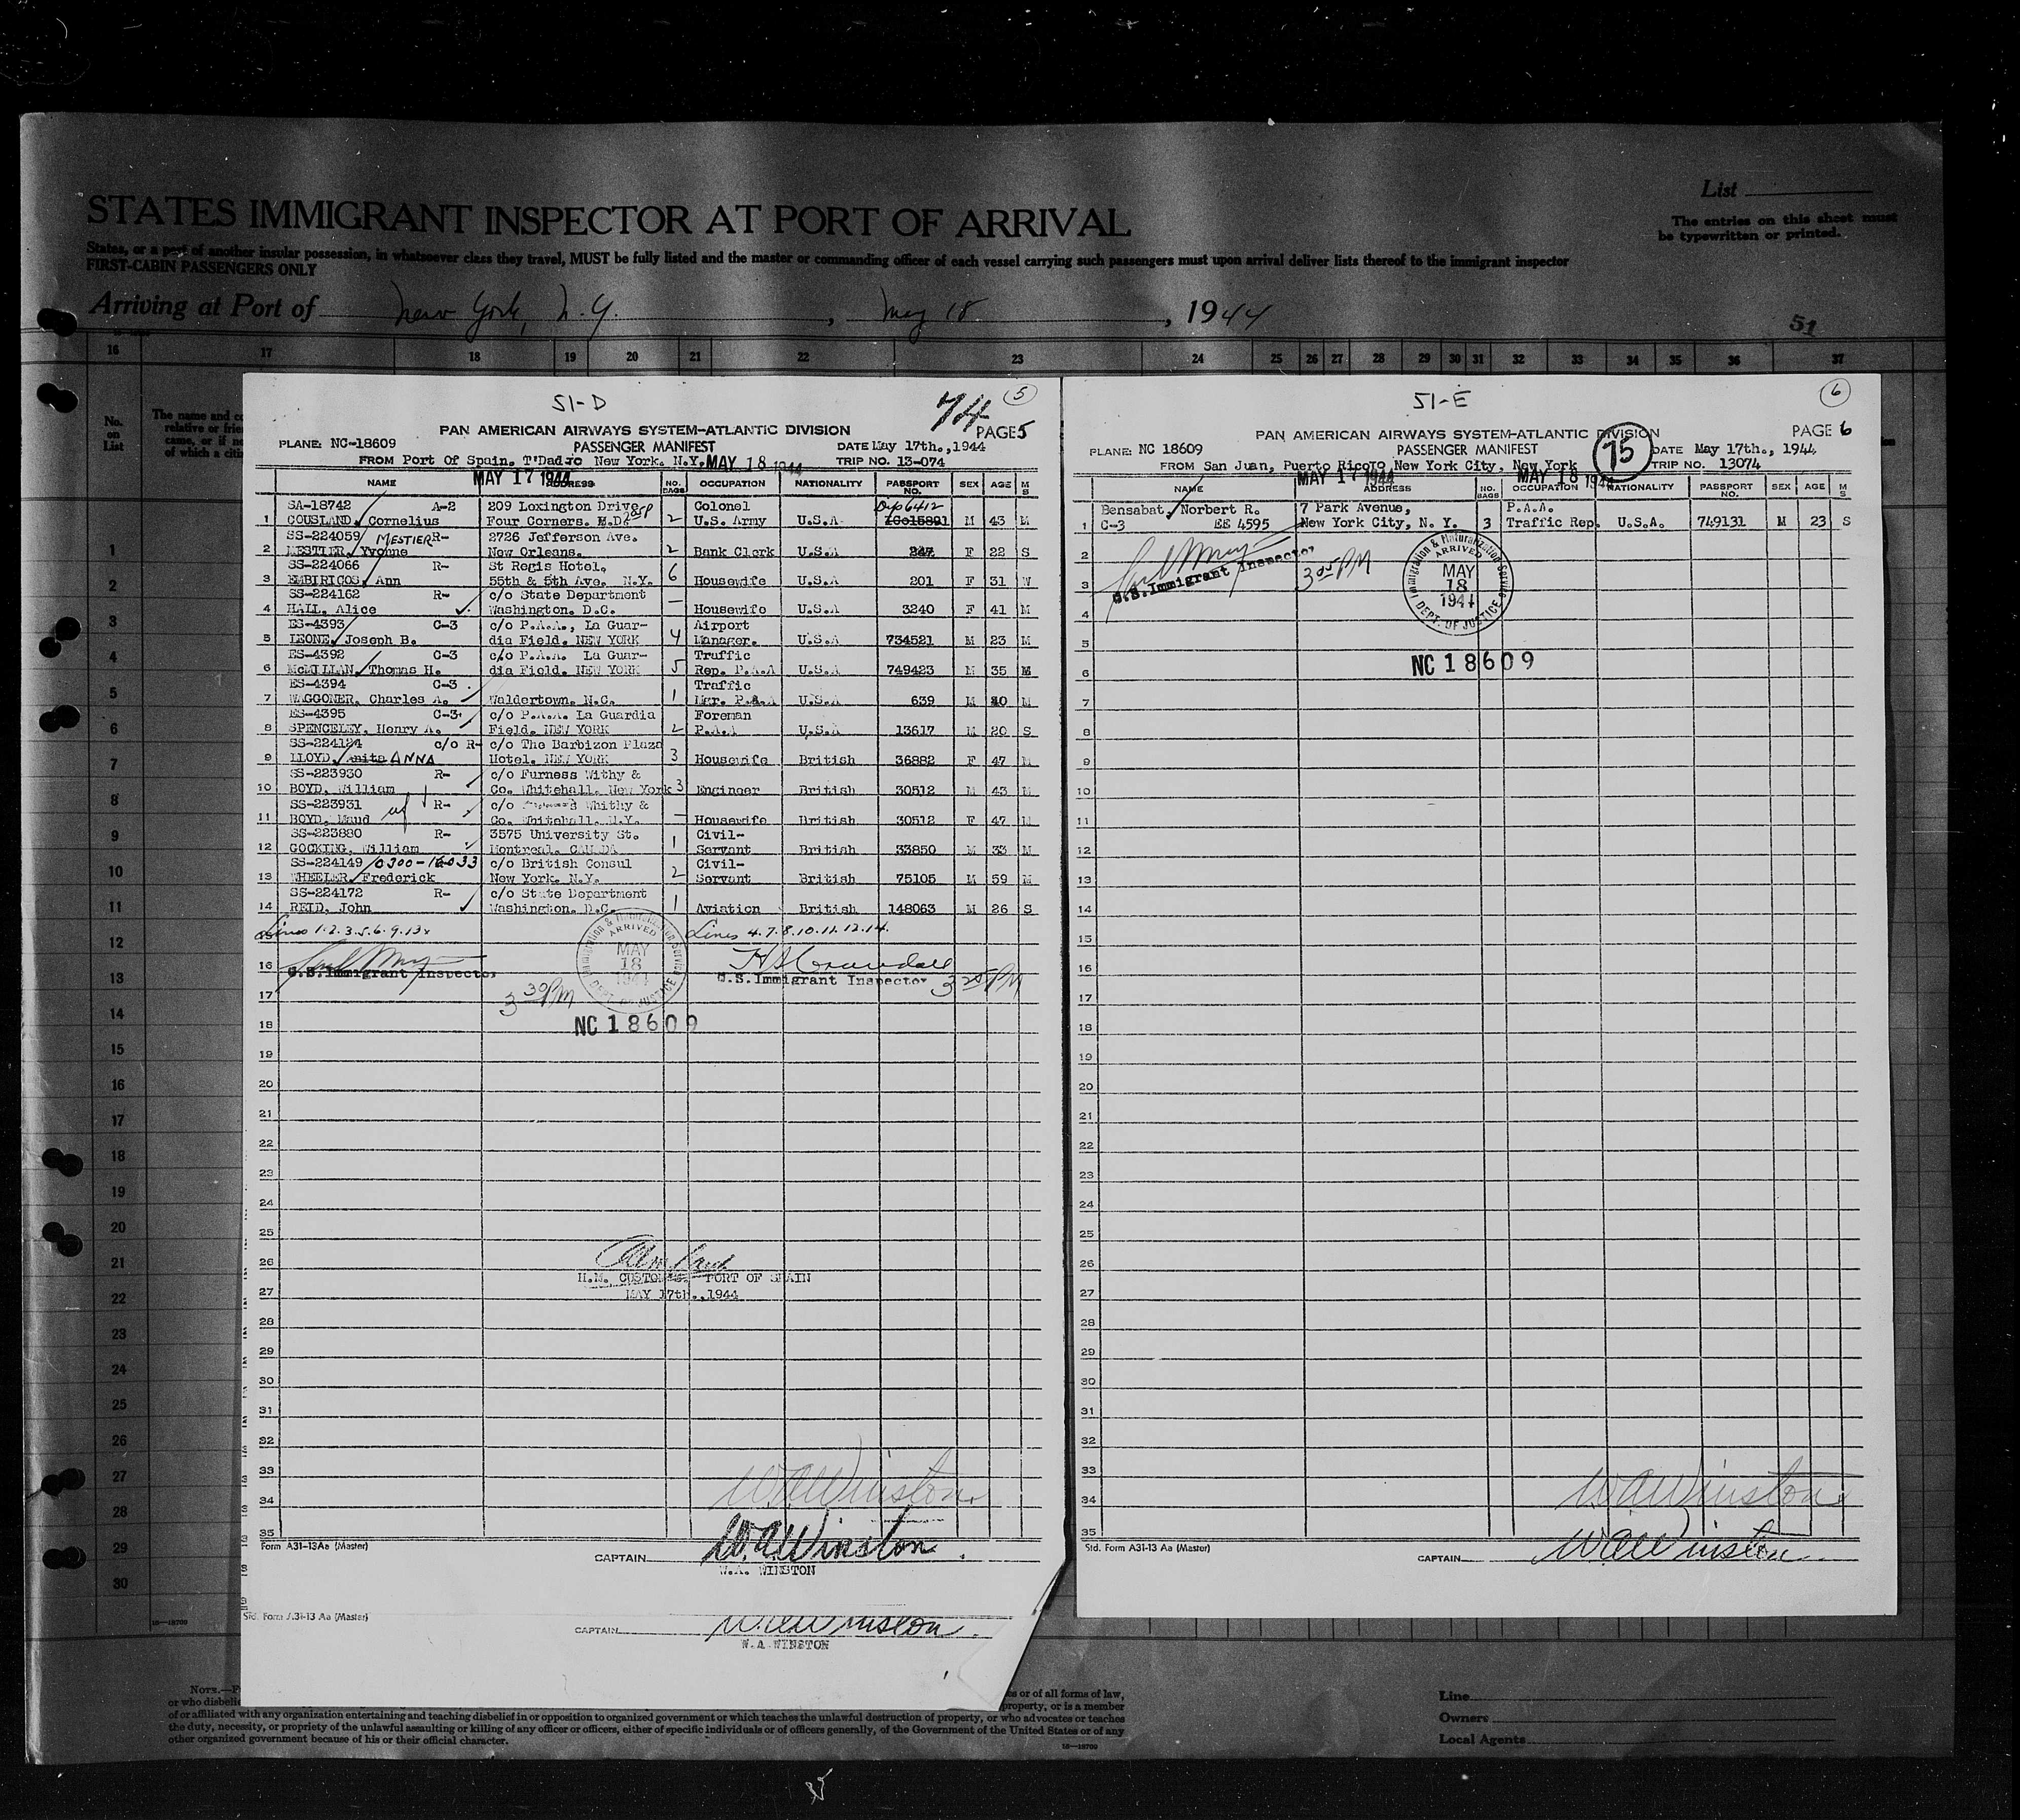 List
STATES IMMIGRANT INSPECTOR AT PORT OF ARRIVAL
The entries on this sheet must
be typewritten or printed.
States, or a part of another insular possession, in whatsoever class they travel, MUST be fully listed and the master or commanding officer of each vessel carrying such passengers must upon arrival deliver lists thereof to the immigrant inspector
FIRST-CABIN PASSENGERS ONLY
Arriving at Port of New York, N.Y., May 18, 1944
51
16 17 18 19 20 21 22 23 24 25 26 27 28 29 30 31 32 33 34 35 36 37
No. on List
The name and
relative or
came, or if
of which a
51-D
74
5
PAN AMERICAN AIRWAYS SYSTEM-ATLANTIC DIVISION
PAGE 5
PLANE: NC-18609 PASSENGER MANIFEST DATE May 17th., 1944
FROM Port Of Spain. T'Dad TO New York. N.Y. MAY 18 1944 TRIP NO. 13-074
MAY 17 1944
NAME ADDRESS NO. BAGS OCCUPATION NATIONALITY PASSPORT NO. SEX AGE M S
SA-18742 A-2 209 Lexington Drive Colonel Dip 6412
1 COUSLAND, Cornelius Four Corners. M.D. 2 U.S. Army U.S.A. M 43 M
SS-224059 MESTIER R- 2726 Jefferson Ave.
2 MESTLER, Yvonne New Orleans. 2 Bank Clerk U.S.A 247 F 22 S
SS-224066 R- St Regis Hotel,
3 EMBIRICOS, Ann 55th & 5th Ave. N.Y. 6 Housewife U.S.A 201 F 31 W
SS-224162 R- c/o State Department
4 HALL, Alice Washington. D.C. — Housewife U.S.A 3240 F 41 M
ES-4393 C-3 c/o P.A.A., La Guar- Airport
5 LEONE, Joseph B. dia Field. NEW YORK 4 Manager. U.S.A 734521 M 23 M
ES-4392 C-3 c/o P.A.A. La Guar- Traffic
6 McMILLAN, Thomas H. dia Field. NEW YORK 5 Rep. P.A.A U.S.A 749423 M 35 M
ES-4394 C-3 Traffic
7 WAGGONER, Charles A. Waldertown. N.C. 1 Mgr. P.A.A U.S.A 639 M 40 M
ES-4395 C-3 c/o P.A.A. La Guardia Foreman
8 SPENCELEY, Henry A. Field. NEW YORK 2 P.A.A U.S.A 13617 M 20 S
SS-224124 c/o R- c/o The Barbizon Plaza
9 LLOYD, Anita ANNA Hotel. NEW YORK 3 Housewife British 36882 F 47 M
SS-223930 R- c/o Furness Withy &
10 BOYD, William Co. Whitehall. New York 3 Engineer British 30512 M 43 M
SS-223931 R- c/o Whithy &
11 BOYD, Maud Co. Whitehall. N.Y. — Housewife British 30512 F 47 M
SS-223880 R- 3575 University St. Civil-
12 GOCKING, William Montreal. CANADA 1 Servant British 33850 M 33 M
SS-224149 0300-16033 c/o British Consul Civil-
13 WHEELER, Frederick New York. N.Y. 2 Servant British 75105 M 59 M
SS-224172 R- c/o State Department
14 REID, John Washington. D.C 1 Aviation British 148063 M 26 S
Lines 1.2.3.5.6.9.13x Lines 4.7.8.10.11.12.14.
U.S. Immigrant Inspector
3 30 PM
Immigration & Naturalization Service
ARRIVED
MAY
18
1944
DEPT. OF JUSTICE
U.S. Immigrant Inspector 3 25 PM
NC 18609
15
16
17
18
19
20
21
22
23
24
25
26
27
28
29
30
31
32
33
34
35
H.M. CUSTOMS. PORT OF SPAIN
MAY 17th.,1944
W.A. Winston
Form A31-13Aa (Master)
CAPTAIN W.A. Winston
W.A. WINSTON
Std. Form A31-13 Aa (Master)
CAPTAIN W.A. Winston
W.A WINSTON
51-E
6
PAN AMERICAN AIRWAYS SYSTEM-ATLANTIC DIVISION
PAGE 6
75
PLANE: NC 18609 PASSENGER MANIFEST DATE May 17th., 1944
FROM San Juan, Puerto Rico TO New York City, New York TRIP NO. 13074
MAY 17 1944 MAY 18 1944
NAME ADDRESS NO. BAGS OCCUPATION NATIONALITY PASSPORT NO. SEX AGE M S
Bensabat, Norbert R. 7 Park Avenue, P.A.A.
1 C-3 EE 4595 New York City, N. Y. 3 Traffic Rep. U.S.A. 749131 M 23 S
U.S. Immigrant Inspector
3 05 PM
Immigration & Naturalization Service
ARRIVED
MAY
18
1944
DEPT. OF JUSTICE
NC 18609
2
3
4
5
6
7
8
9
10
11
12
13
14
15
16
17
18
19
20
21
22
23
24
25
26
27
28
29
30
31
32
33
34
35
W.A. Winston
Std. Form A31-13 Aa (Master)
CAPTAIN W.A. Winston
1
2
3
4
5
6
7
8
9
10
11
12
13
14
15
16
17
18
19
20
21
22
23
24
25
26
27
28
29
30
16—19709
NOTE.—
or who
of or affiliated with any organization entertaining and teaching disbelief in or opposition to organized government or which teaches the unlawful destruction of property, or who advocates or teaches
the duty, necessity, or propriety of the unlawful assaulting or killing of any officer or officers, either of specific individuals or of officers generally, of the Government of the United States or of any
other organized government because of his or their official character.
or of all forms of law,
property, or is a member
16—19709
Line
Owners
Local Agents